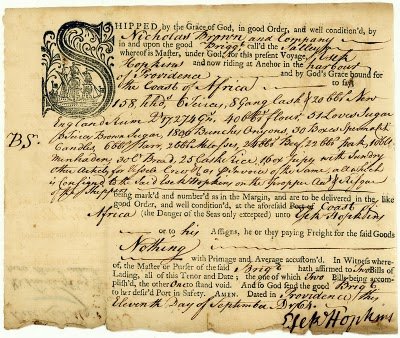 SHIPPED, by the Grace of God, in good Order, and well condition'd, by
Nicholas Brown and Company
in and upon the good Brigt call'd the Sally
whereof is Master, under God, for this present Voyage, Esek
Hopkins and now riding at Anchor in the harbour
of Providence and by God's Grace bound for
the Coast of Africa to say
158 hhd, 6 Tierces, 8 Gang Cask & 20 bbs New
England Rum 40 bbs flour, 51 Loves Sugar
Tierces Brown Sugar, 1800 Bunches Onyons, 30 Boxes Spermaceti
Candles, 6 bbs Tarr, 20 bbs Molasses, 2 bbs Beef, 22 bbs Pork,
Menhaden, 30 C Bread, 25 Casks Rice, with Sundry
other as Invoice of the Same, all which
is Consign'd to the said Esek Hopkins on the Proper
of the Shippers
B S.
being mark'd and number'd as in the Margin, and are to be delivered, in the like
good Order, and well condition'd, at the aforesaid Port of Coast of
Africa (the Danger of the Seas only excepted) unto Esek Hopkins
or to his Assigns, he or they paying Freight for the said Goods
Nothing
with Primage and Average accustom'd. In Witness where-
of, the Master or Purser of the said Brigt hath affirmed to Two Bills of
Lading, all of this Tenor and Date; the one of which Two Bills being accom-
plish'd, the other One to stand void. And so God send the good Brigt
to her desir'd Port in Safety. AMEN. Dated in Providence this
Eleventh Day of September 1764.
Esek Hopkins